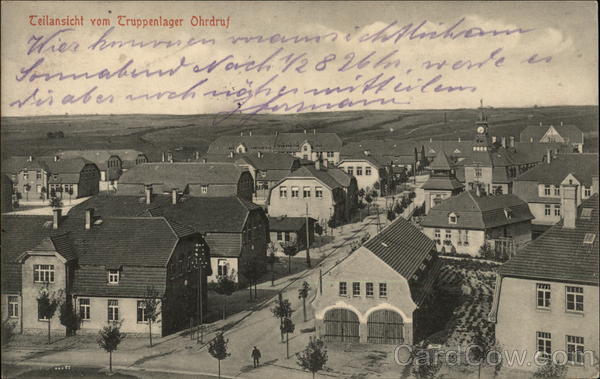 Teilansicht vom Truppenlager Ohrdruf
Wir kommen voraussichtlich am
Sonnabend Nach 1/2 8 Uhr, werde es
dir aber noch näher mitteilen
Hermann
CardCow.com